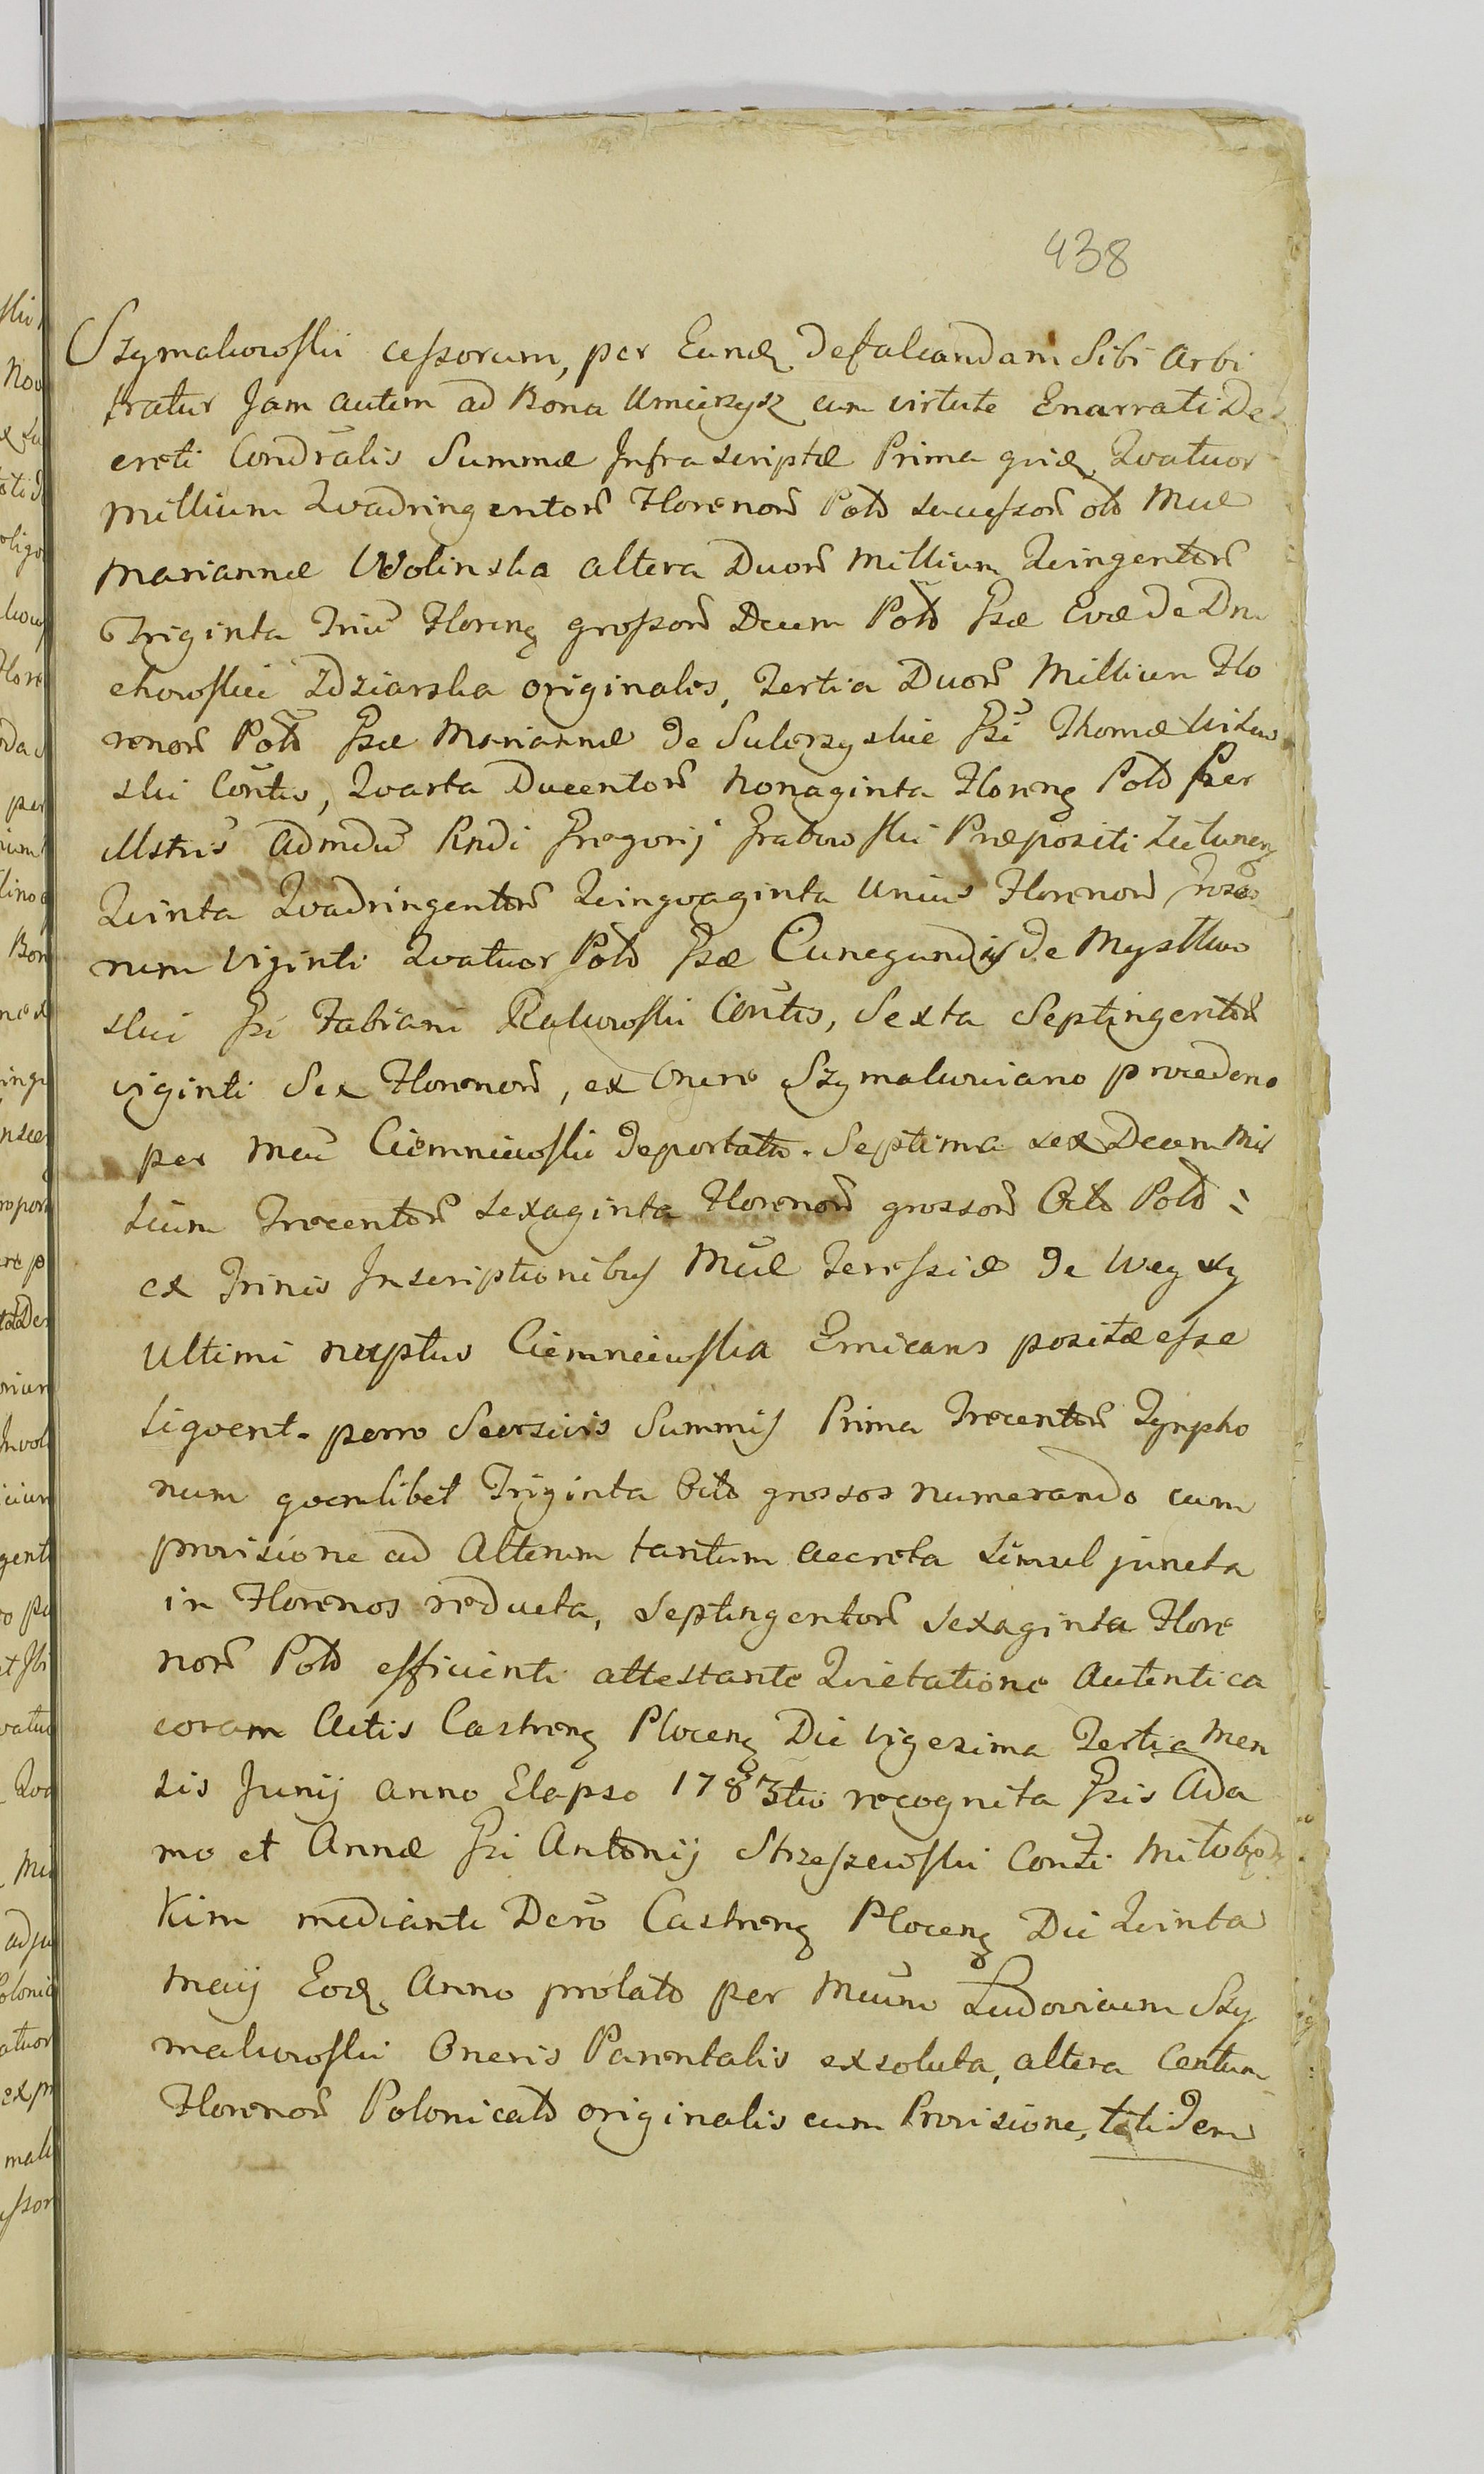 438
Szymakowskii cessorum, per Eund defalcandam Sibi Arbi
tratur Jam autem ad Bona Umierzysz cum virtute Enarrati De
creti Condralis Summæ Infra scriptæ Prima quid Qvatuor
Millium Qvadringentorũ Florenorũ Pold successorũ olð Mũe
Mariannæ Wolinska altera Duorũ Millium Qvingentorũ
Triginta Triũ Floreng grossorũ Decem Pold Gsæ Evæ de Dni
chowskie Zdziarska originalis, Tertia Duorũ Millium Flo
renorũ Pold Gsæ Mariannæ de Sulerzyskie Gsi Thomæ
skii Contis, Qvarta Ducentorũ Nonaginta Floreng Pold Per
Illstris Admdũ Rndi Gregorij Grabowskii Præpositi
Qvinta Qvadringentorũ Qvinqvaginta Unius Florenorũ
num Viginti Qvatuor Pold Gsæ Cunegundis de Mystkow
skii Gsi Fabiani Rakowskii Contis, Sexta Septingentorũ
viginti Sex Florenorũ, ex Onere Szymakowiano procedeno
per Mcũ Ciemniewskii deportatæ. Septima sex Decem Mil
lium Trecentorũ sexaginta Florenorũ grossorũ Octo Pold
ex Trinis Inscriptionibus Mũæ Teressiæ de Węgrzy
Ultimi nuptus Ciemniewska Emicans positæ esse
liqvent. porro Seorsivis Summis Prima Trecentorũ Tynpho
num qvemlibet Triginta Octo grossos numerando cum
provisione ad Alterum tantum accreta simul juncta
in Florenos reducta, Septingentorũ Sexaginta Flore
norũ Pold efficienti attestante Qvietatione Autentica
coram Actis Castreng Ploceng Die vigesima Tertia Men
sis Junij Anno Elapso 1783tio recognita Gsis Ada
mo et Annæ Gsi Antonij Strzeszewskii Conti Milobędz
Kim mediante Decrõ Castreng Ploceng Die Qvinta
Maij Eod Anno prolato per Mcum Ludovicum Szy
makowskii Oneris Parentalis exsoluta, altera Centum
Florenorũ Polonicalð originalis cum Provisione, totidem